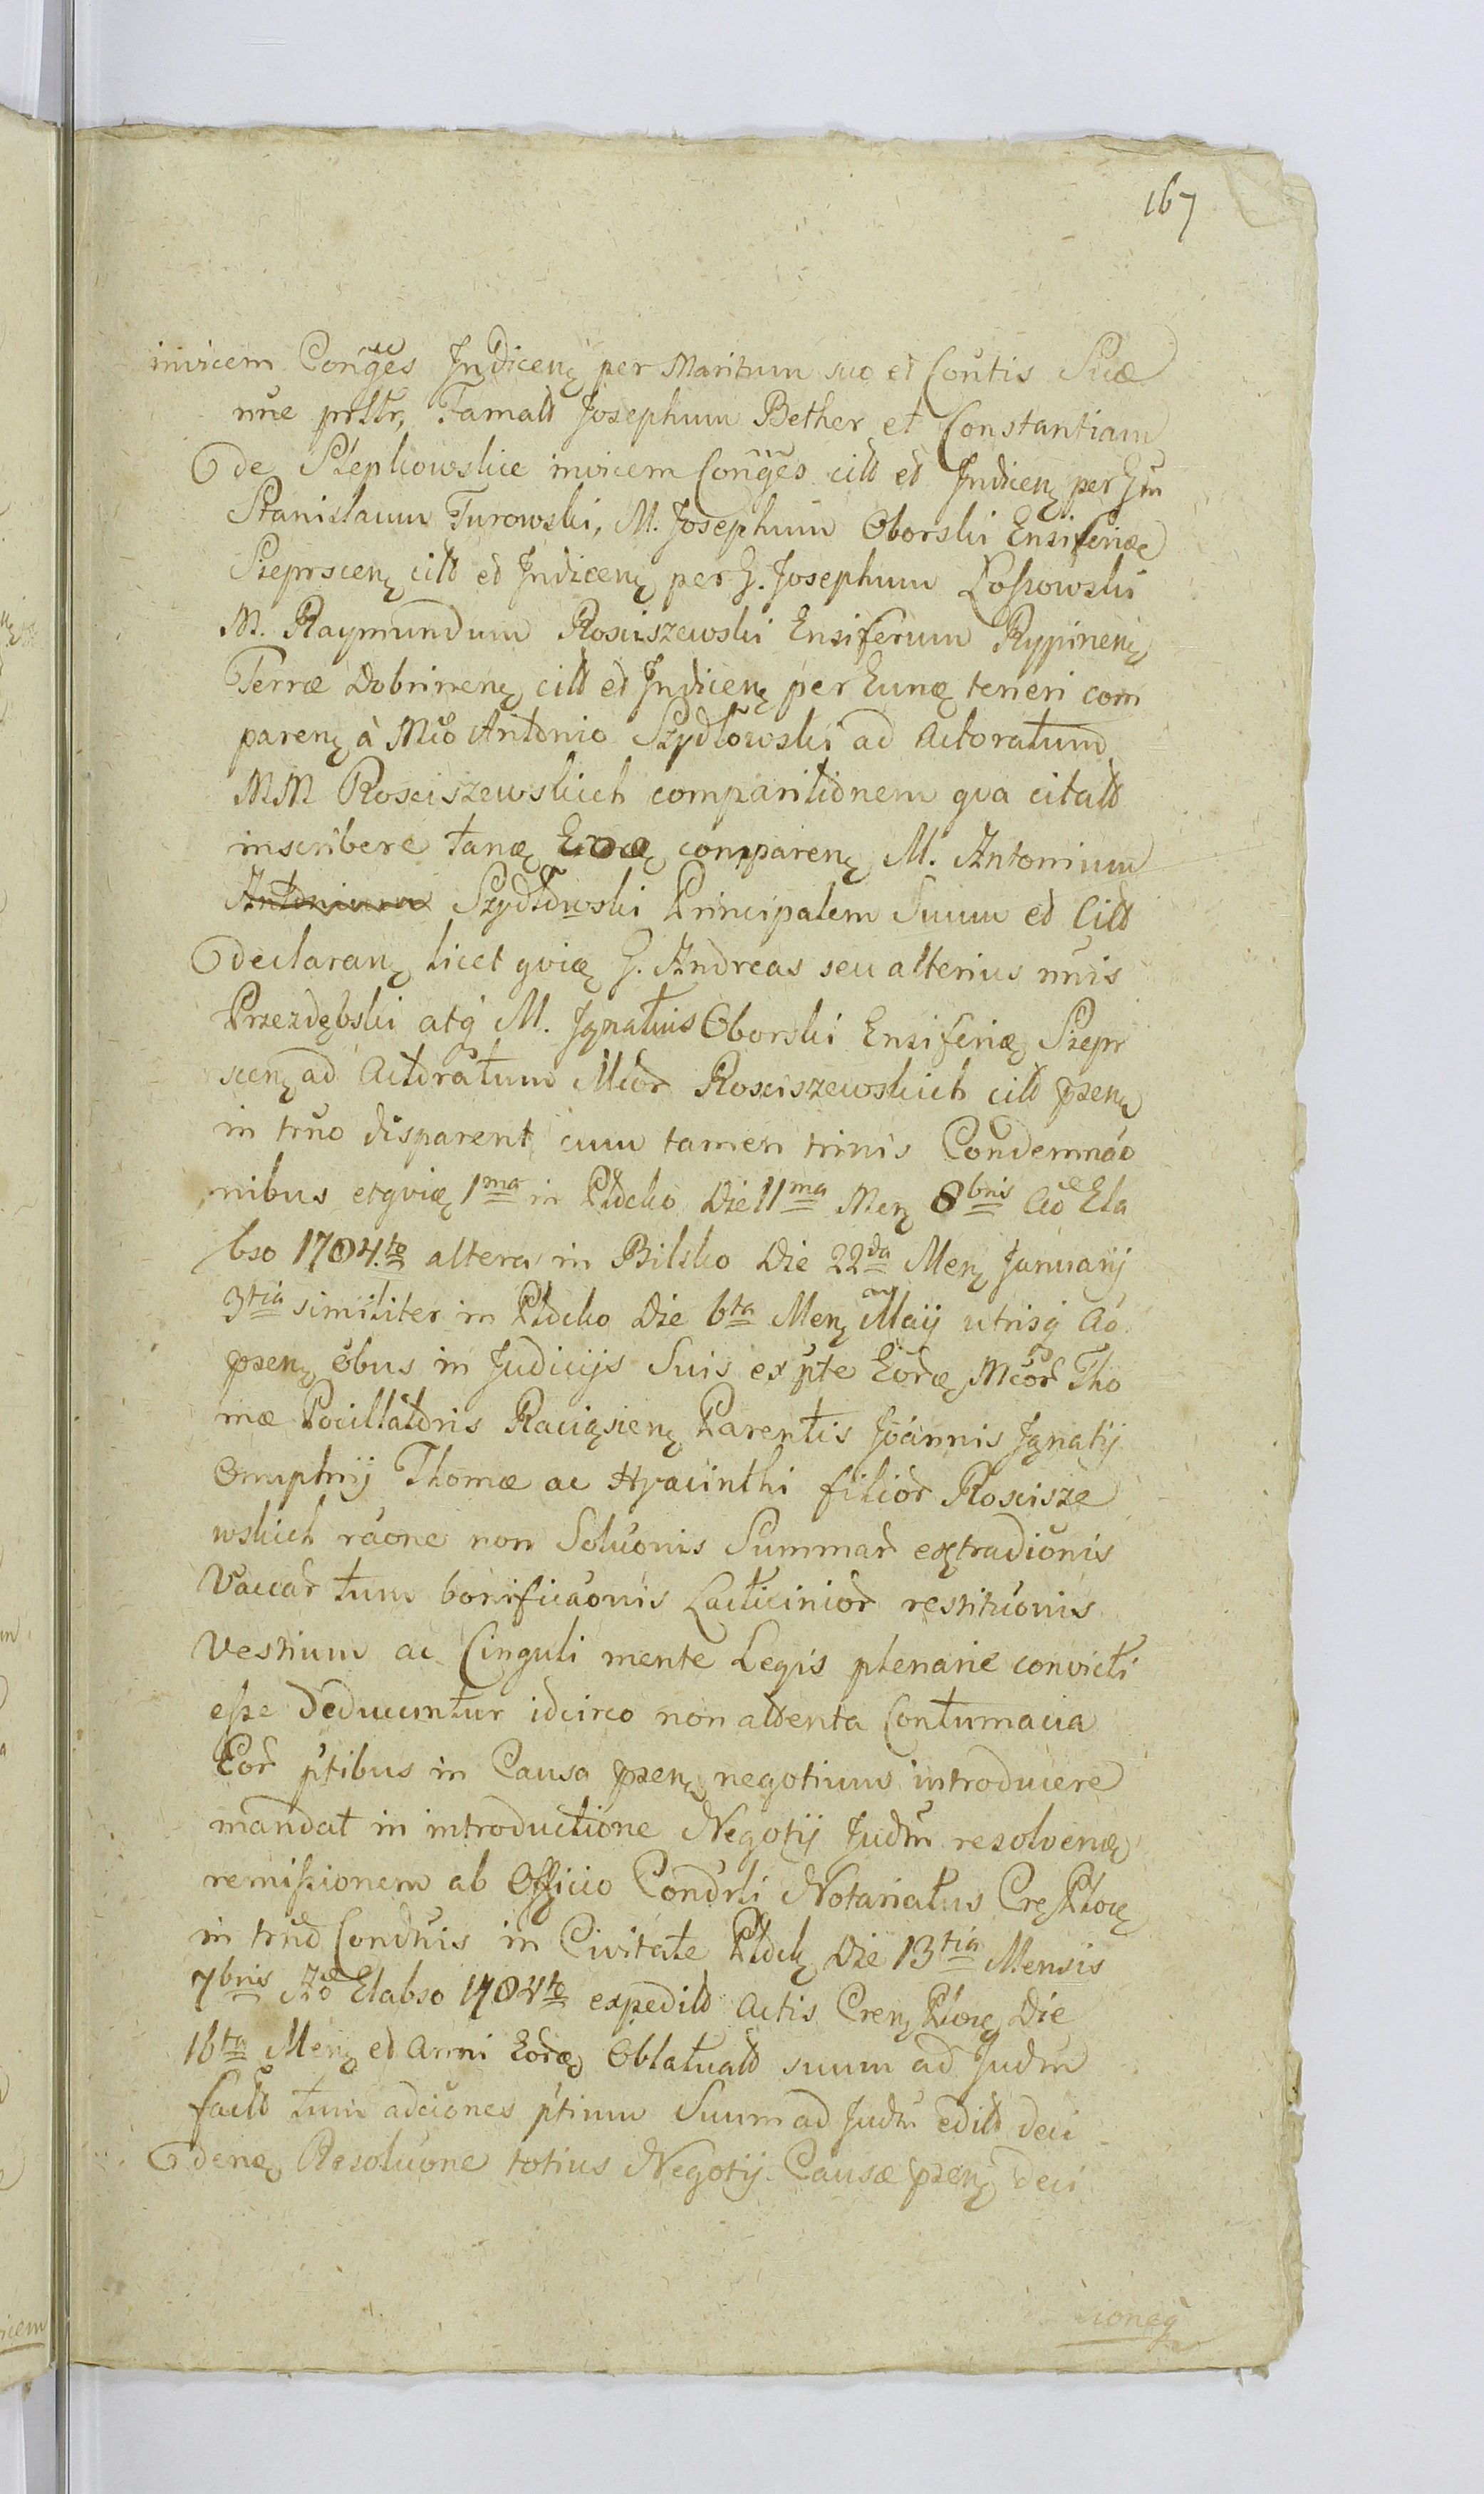 167
invicem Conģes Indicenę per Maritum suo et Contis Suæ
nŭe prsttr, Famatt Josephum Bether et Constantiam
de Stepkowskie invicem Conģes citt et Indicenę per Gm
Stanislaum Turowski, M. Josephum Oborski Ensiferidę
Szeprscenę citt et Indicenę per G. Josephum Łossowski
M. Raymundum Rosciszewski Ensiferum Rypinenę
Terræ Dobrinenę citt et Indicenę per Eunę teneri com
parenę à Mco Antonio Szydłowski ad Actoratum
MM Rosciszewskich comparitionem qva citatt
inscribere tanę Eodę comparenę M. Antonium
Antonium Szydłowski Principalem Suum et Citt
declaranę licet qvię G. Andreas seu alterius nŭis
Przezdębski atq̇ M. Jgnatius Oborski Ensiferię Szepr
scenę ad Actoratum Mcor̃ Rosciszewskich citt p̃senę
in trŭo disparent cum tamen trinis Condemnáo
nibus etqvię 1ma in Płocko Die 11ma Menę 8bris Aõ Ela
bso 1784.to altera in Bilsko Die 22da Menę Januarij
3tia similiter in Płocko Die 6ta Menę Maij utrisq̇ Aõ
p̃senę õbus in Judicijs Suis ex p̃te Eor̃dę Mcor̃ Tho
mæ Pocillatoris Raciąsienę Parentis Joánnis Jgnatij
Onuphrij Thomæ ac Hyacinthi filior̃ Roscisze
wskich ráone non Soluonis Summar̃ extradionis
Vaccar̃ tum bonificaonis Lacticinior̃ restituonis
Vestium ac Cinguli mente Legis plenarie convicti
esse deducuntur idcirco non attenta Contumacia
Eor̃ p̃tibus in Causa p̃senę negotium introducere
mandat in introductione Negotij Judm̃ resolvenę
remissionem ab Officio Condrli Notariatus Cre Płocę
in trŭo Condnis in Civitate Płocę Die 13tia Mensis
7bris Ao Elabso 1784to expeditt Actis Crenę Płocę Die
16ta Menę et Anni Eor̃dę Oblatuatt suum ad Judm̃
factt tum adciones p̃tium Suum ad Judm̃ editt deci
denę Resoluone totius Negotij Causæ p̃senę deci
cioneq̇